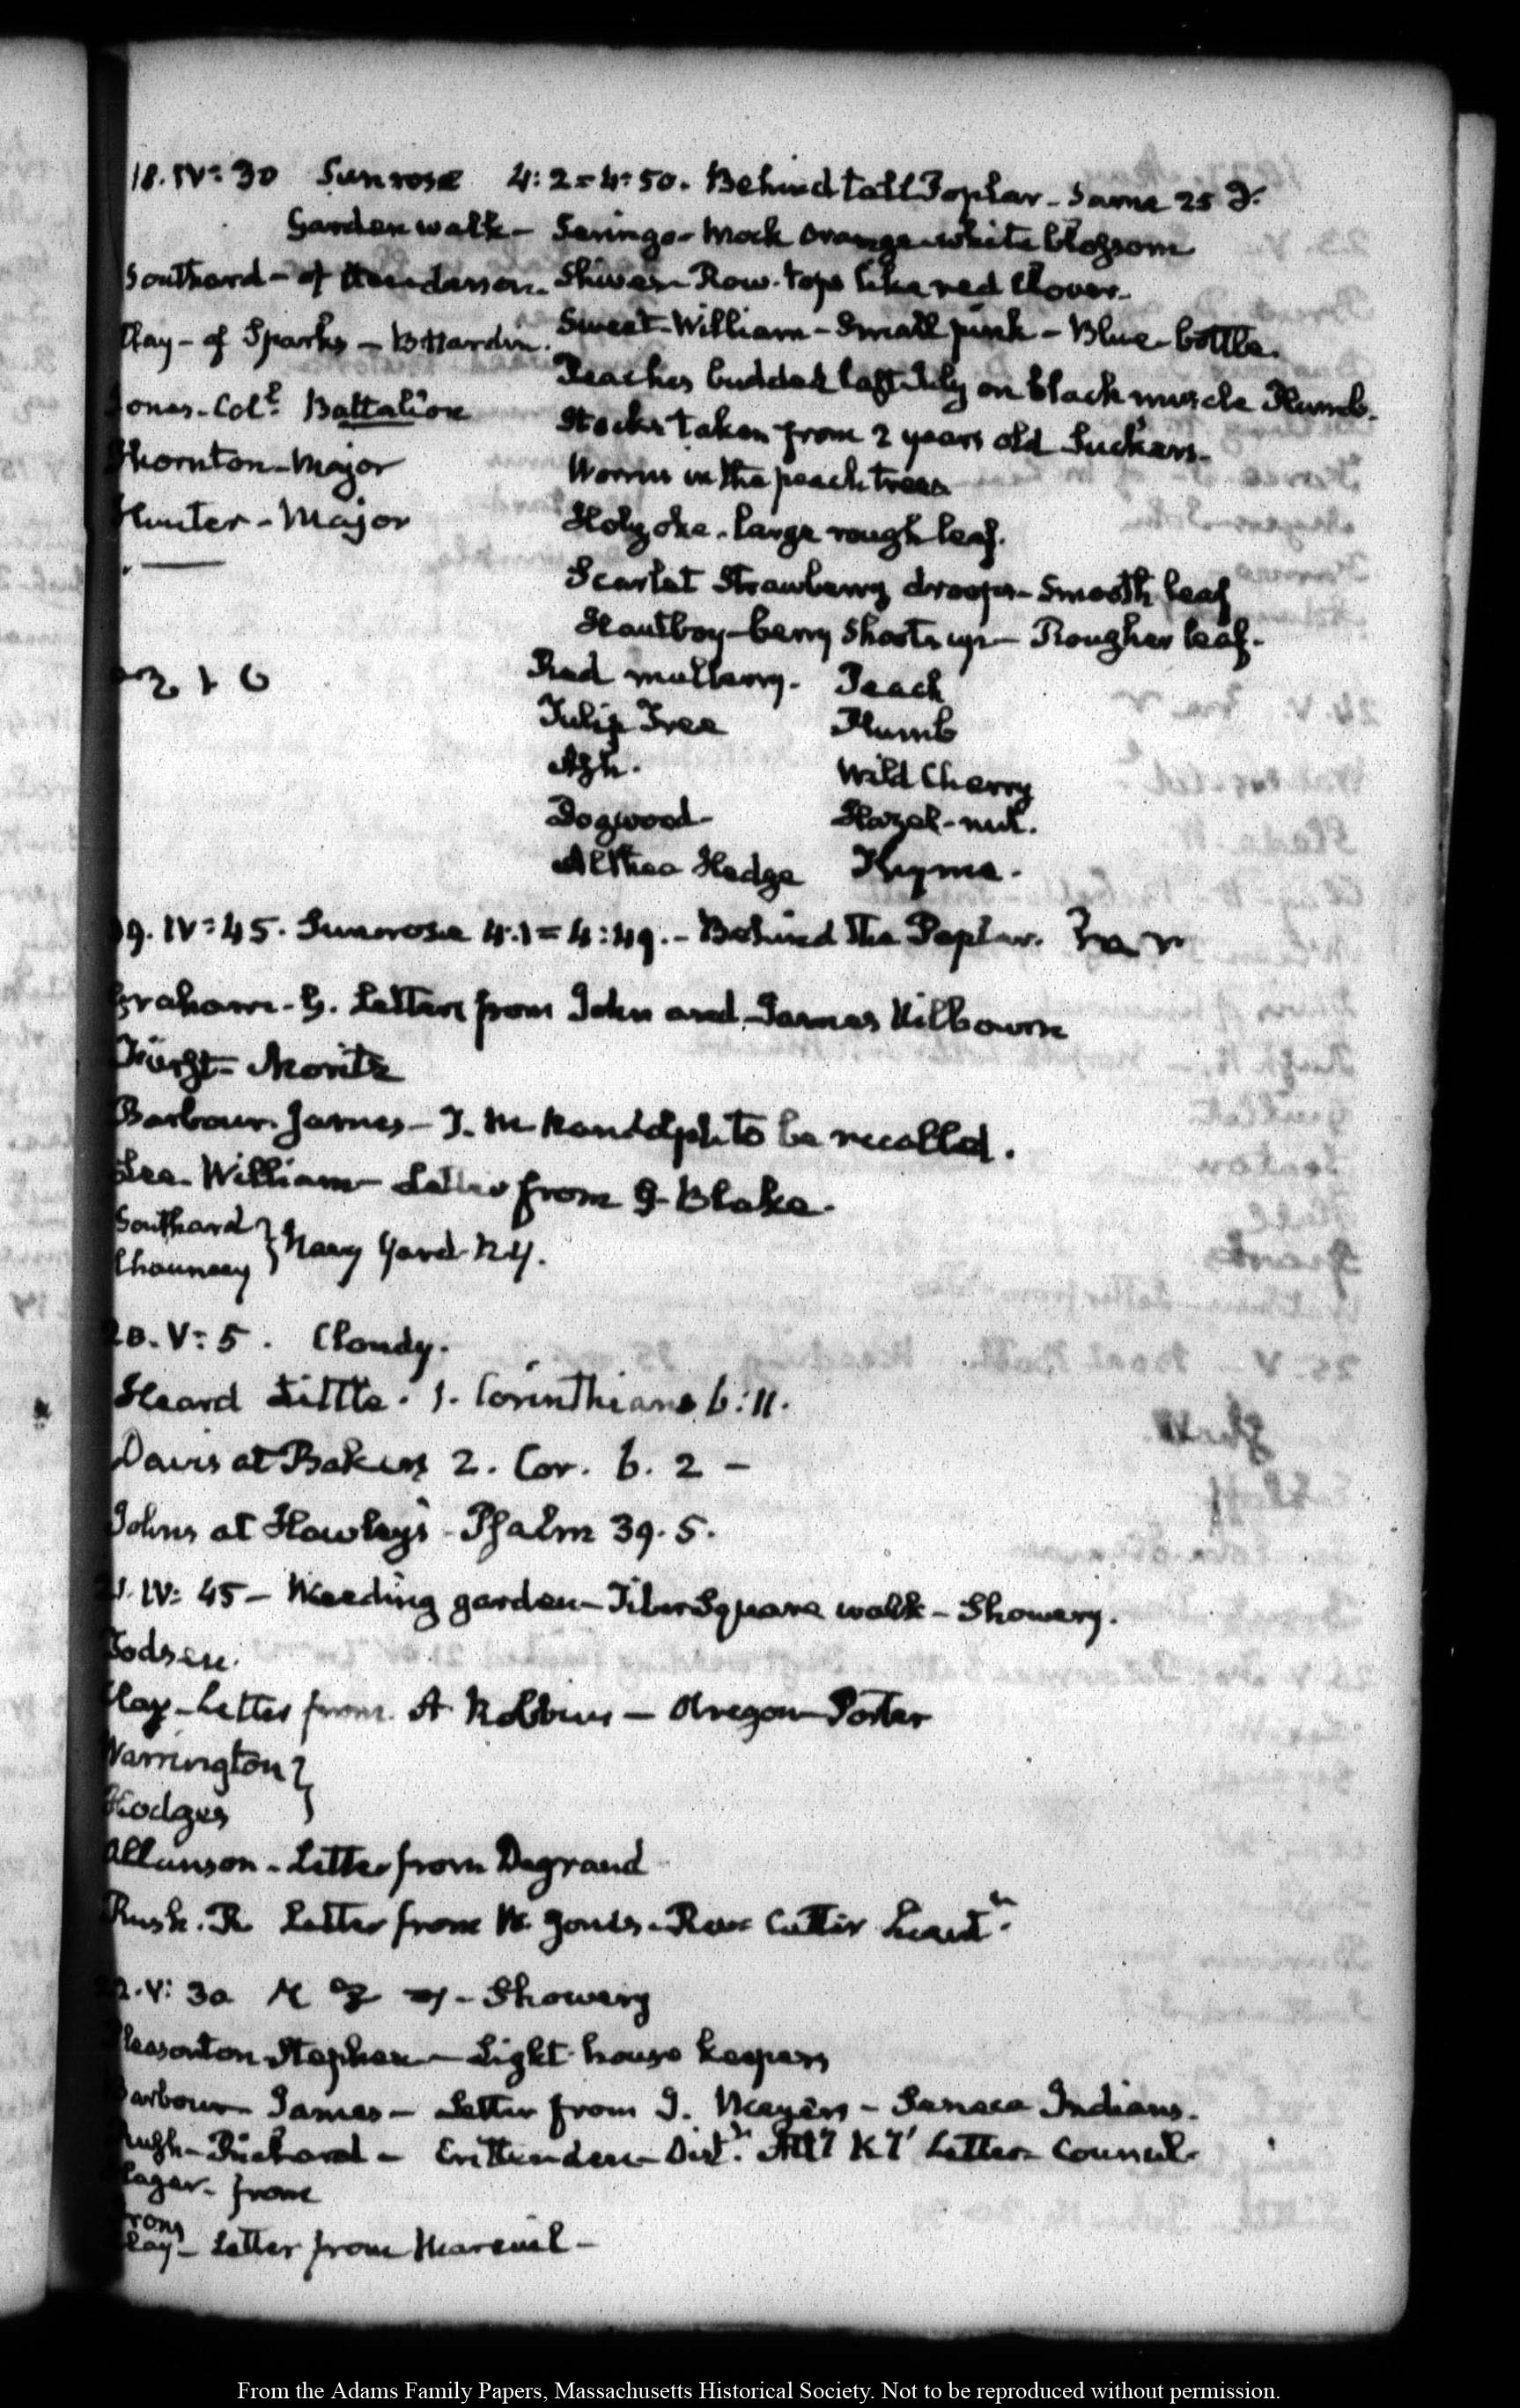 18. IV: 30 Sunrose 4:2 = 4:50. Behind tall Poplar - Same 25
Garden walk - Seringo - Mock Orange - white blossom
Southard - of Henderson. Shives - Row. tops like red Clover -
Clay - of Sparks - B Hardin. Sweet William - Small pink - Blue bottle.
Peaches budded last July on black muscle Plumb.
Jones - Col.l Battalion
Stocks taken from 2 years old Suckers -
Thornton - Major
Worms in the peach trees
Hunter - Major
Holyoke - large rough leaf.
Scarlet Strawberry droops - Smooth leaf
Hautboy - berry Shoots up - Rougher leaf.
Red mulberry. Peach
Tulip Tree Plumb
Ash. Wild Cherry
Dogwood - Hazel-nut.
Althea Hedge Thyme.
19. IV: 45. Sunrose 4.1 = 4:49. - Behind the Poplar.
Graham - G. Letters from John and James Kilbourn
Fürst - Moritz
Barbour James - T. M. Randolph to be recalled.
Lee William - Letter from G. Blake.
Southard
Chauncey } Navy Yard N.Y.
20. V: 5. Cloudy.
Heard Little. 1. Corinthians 6:11.
Davis at Bakers 2. Cor. 6. 2 -
Johns at Hawley's - Psalm 39. 5.
21. IV: 45 - Weeding garden - Tiber Square walk - Showery.
Todsen.
Clay - Letter from A Robbins - Oregon - Porter
Warrington }
Hodges
Allanson - Letter from Degrand
Rush. R Letter from W. Jones - Rev Cutter Lieut
22. V: 30 - Showery
Pleasonton Stephen - Light house keepers
Barbour James - Letter from J. Meyers - Seneca Indians.
Rush - Richard - Crittenden - Dist. Att.y KY Letter - Council -
from
Clay - Letter from Mareuil -
From the Adams Family Papers, Massachusetts Historical Society. Not to be reproduced without permission.